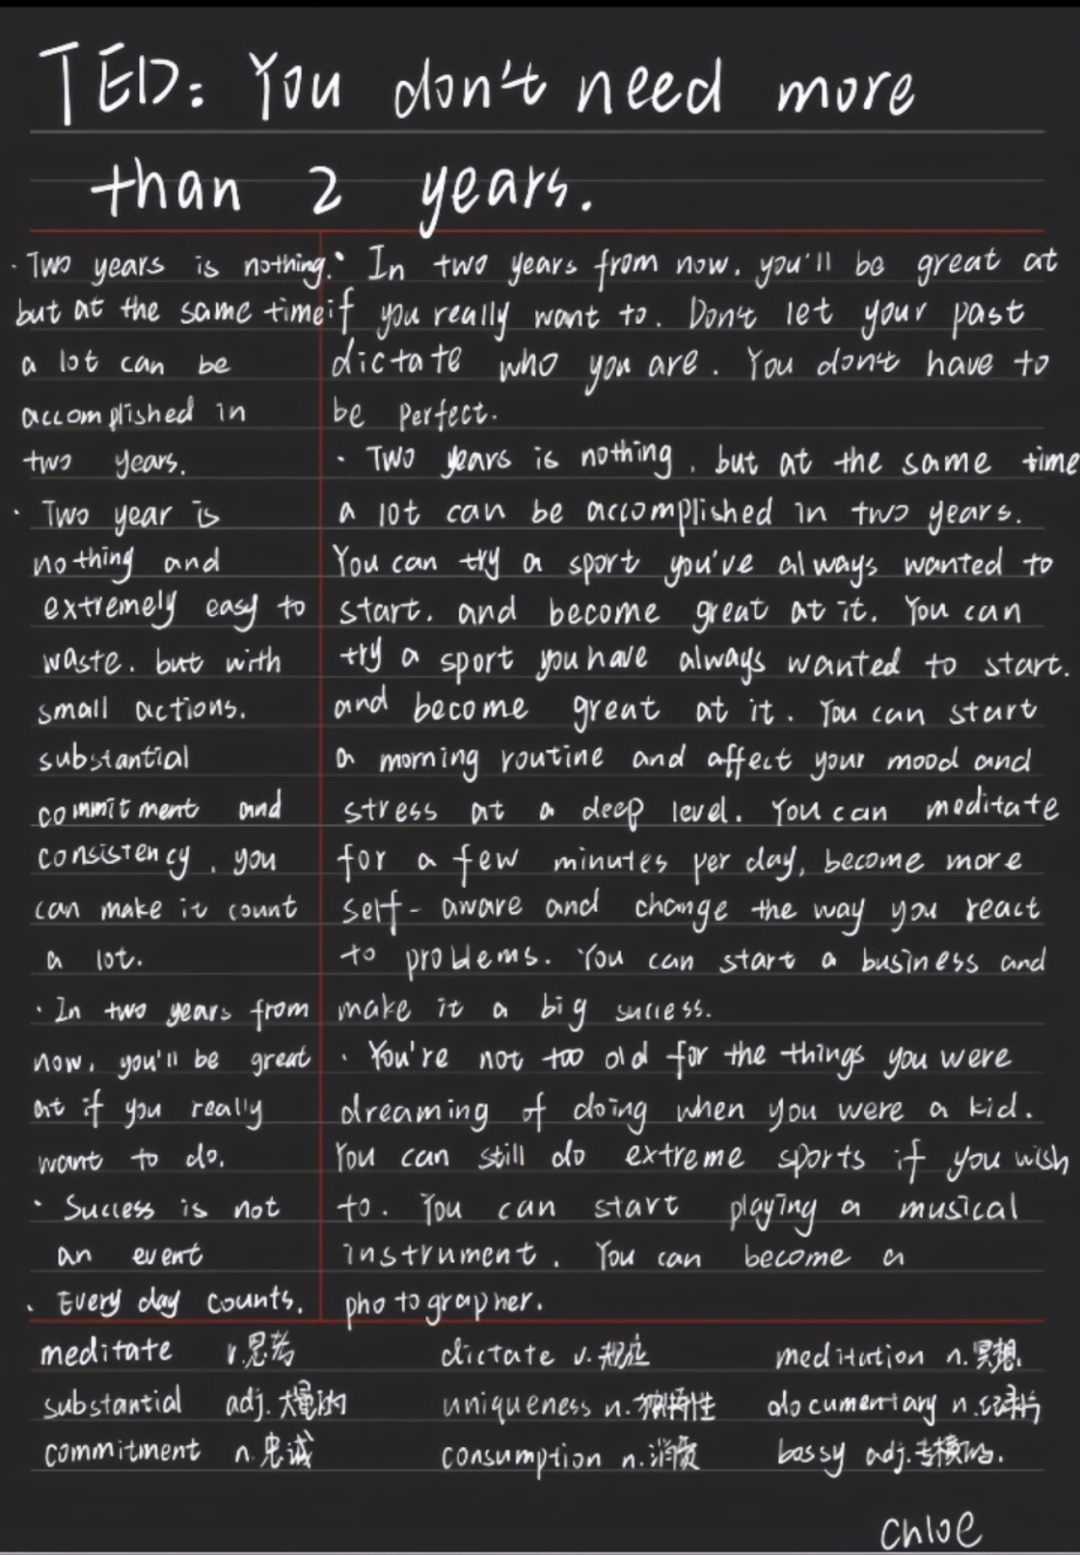 TED: You don't need more
than 2 years.
· Two years is nothing.
but at the same time
a lot can be
accomplished in
two years.
· Two year is
nothing and
extremely easy to
waste. but with
small actions.
substantial
commitment and
consistency, you
can make it count
a lot.
· In two years from
now, you'll be great
at if you really
want to do.
· Success is not
an event
· Every day counts.
· In two years from now, you'll be great at
if you really want to. Don't let your past
dictate who you are. You don't have to
be perfect.
· Two years is nothing, but at the same time
a lot can be accomplished in two years.
You can try a sport you've always wanted to
start, and become great at it. You can
try a sport you have always wanted to start.
and become great at it. You can start
a morning routine and affect your mood and
stress at a deep level. You can meditate
for a few minutes per day, become more
self-aware and change the way you react
to problems. You can start a business and
make it a big success.
· You're not too old for the things you were
dreaming of doing when you were a kid.
You can still do extreme sports if you wish
to. You can start playing a musical
instrument. You can become a
photographer.
meditate v.思考 dictate v.规定 meditation n.冥想.
substantial adj.大量的 uniqueness n.独特性 documentary n.纪录片
commitment n.忠诚 consumption n.消费 bossy adj.专横的.
chloe